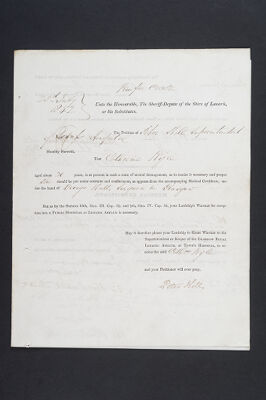 Unto the Honourable, The Sheriff-Depute of the Shire of Lanark,
or his Substitutes.
The Petition of Peter
Humbly Sheweth,
That
Aged about years, is at present in such a state of mental derangement, as to render it necessary and proper
should be put under restraint and confinement, as appears from the accompanying Medical Certificate, un-
der the hand of George Surgeon in Glasgow
But as by the Statutes 55th, Geo. III. Cap. 69, and 9th, Geo. IV. Cap. 34, your Lordship's Warrant for recep-
tion into a Public Hospital or Lunatic Asylum is necessary.
May it therefore please your Lordship to Grant Warrant to the
Superintendent or Keeper of the Glasgow Royal
Lunatic Asylum, or Town's Hospital, to re-
ceive the said
and your Petitioner will ever pray.
Peter